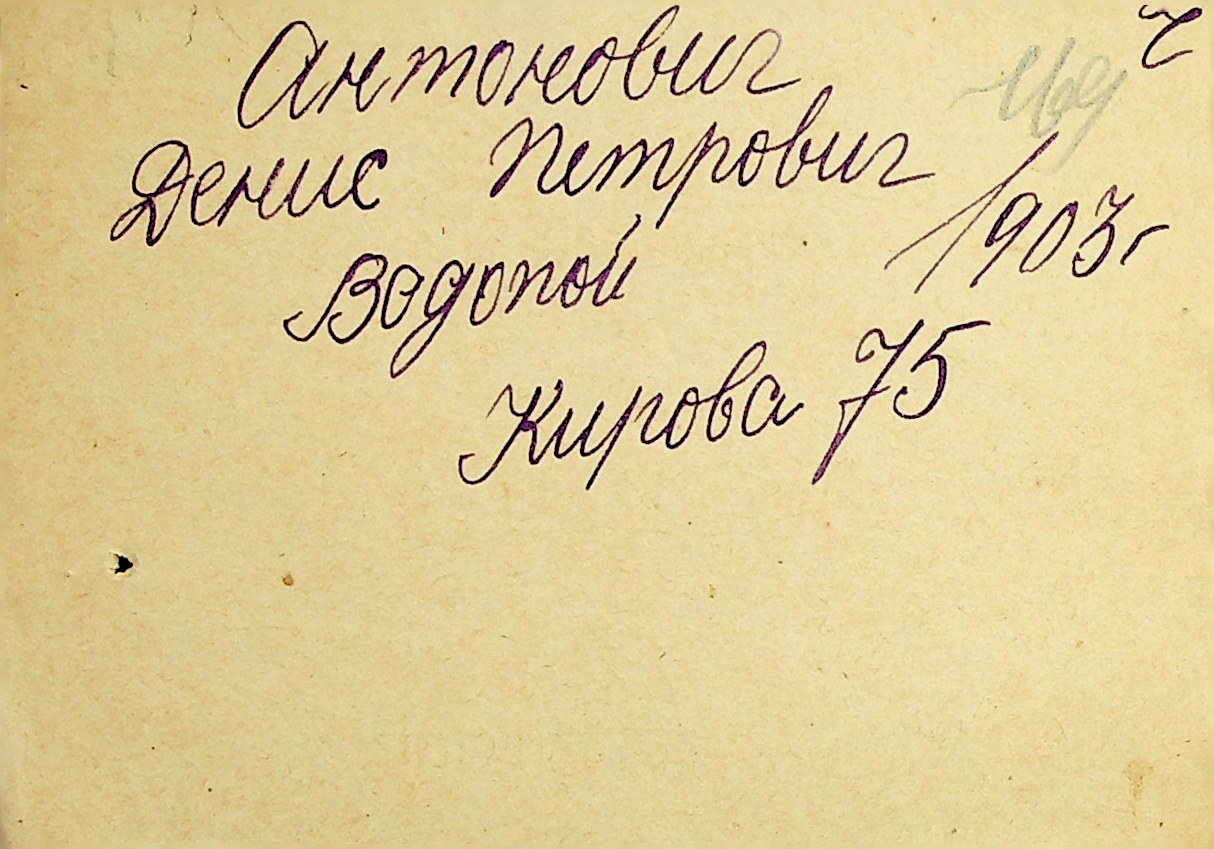 Антонович
Денис Петрович
1903г
Водопой
Кирова 75